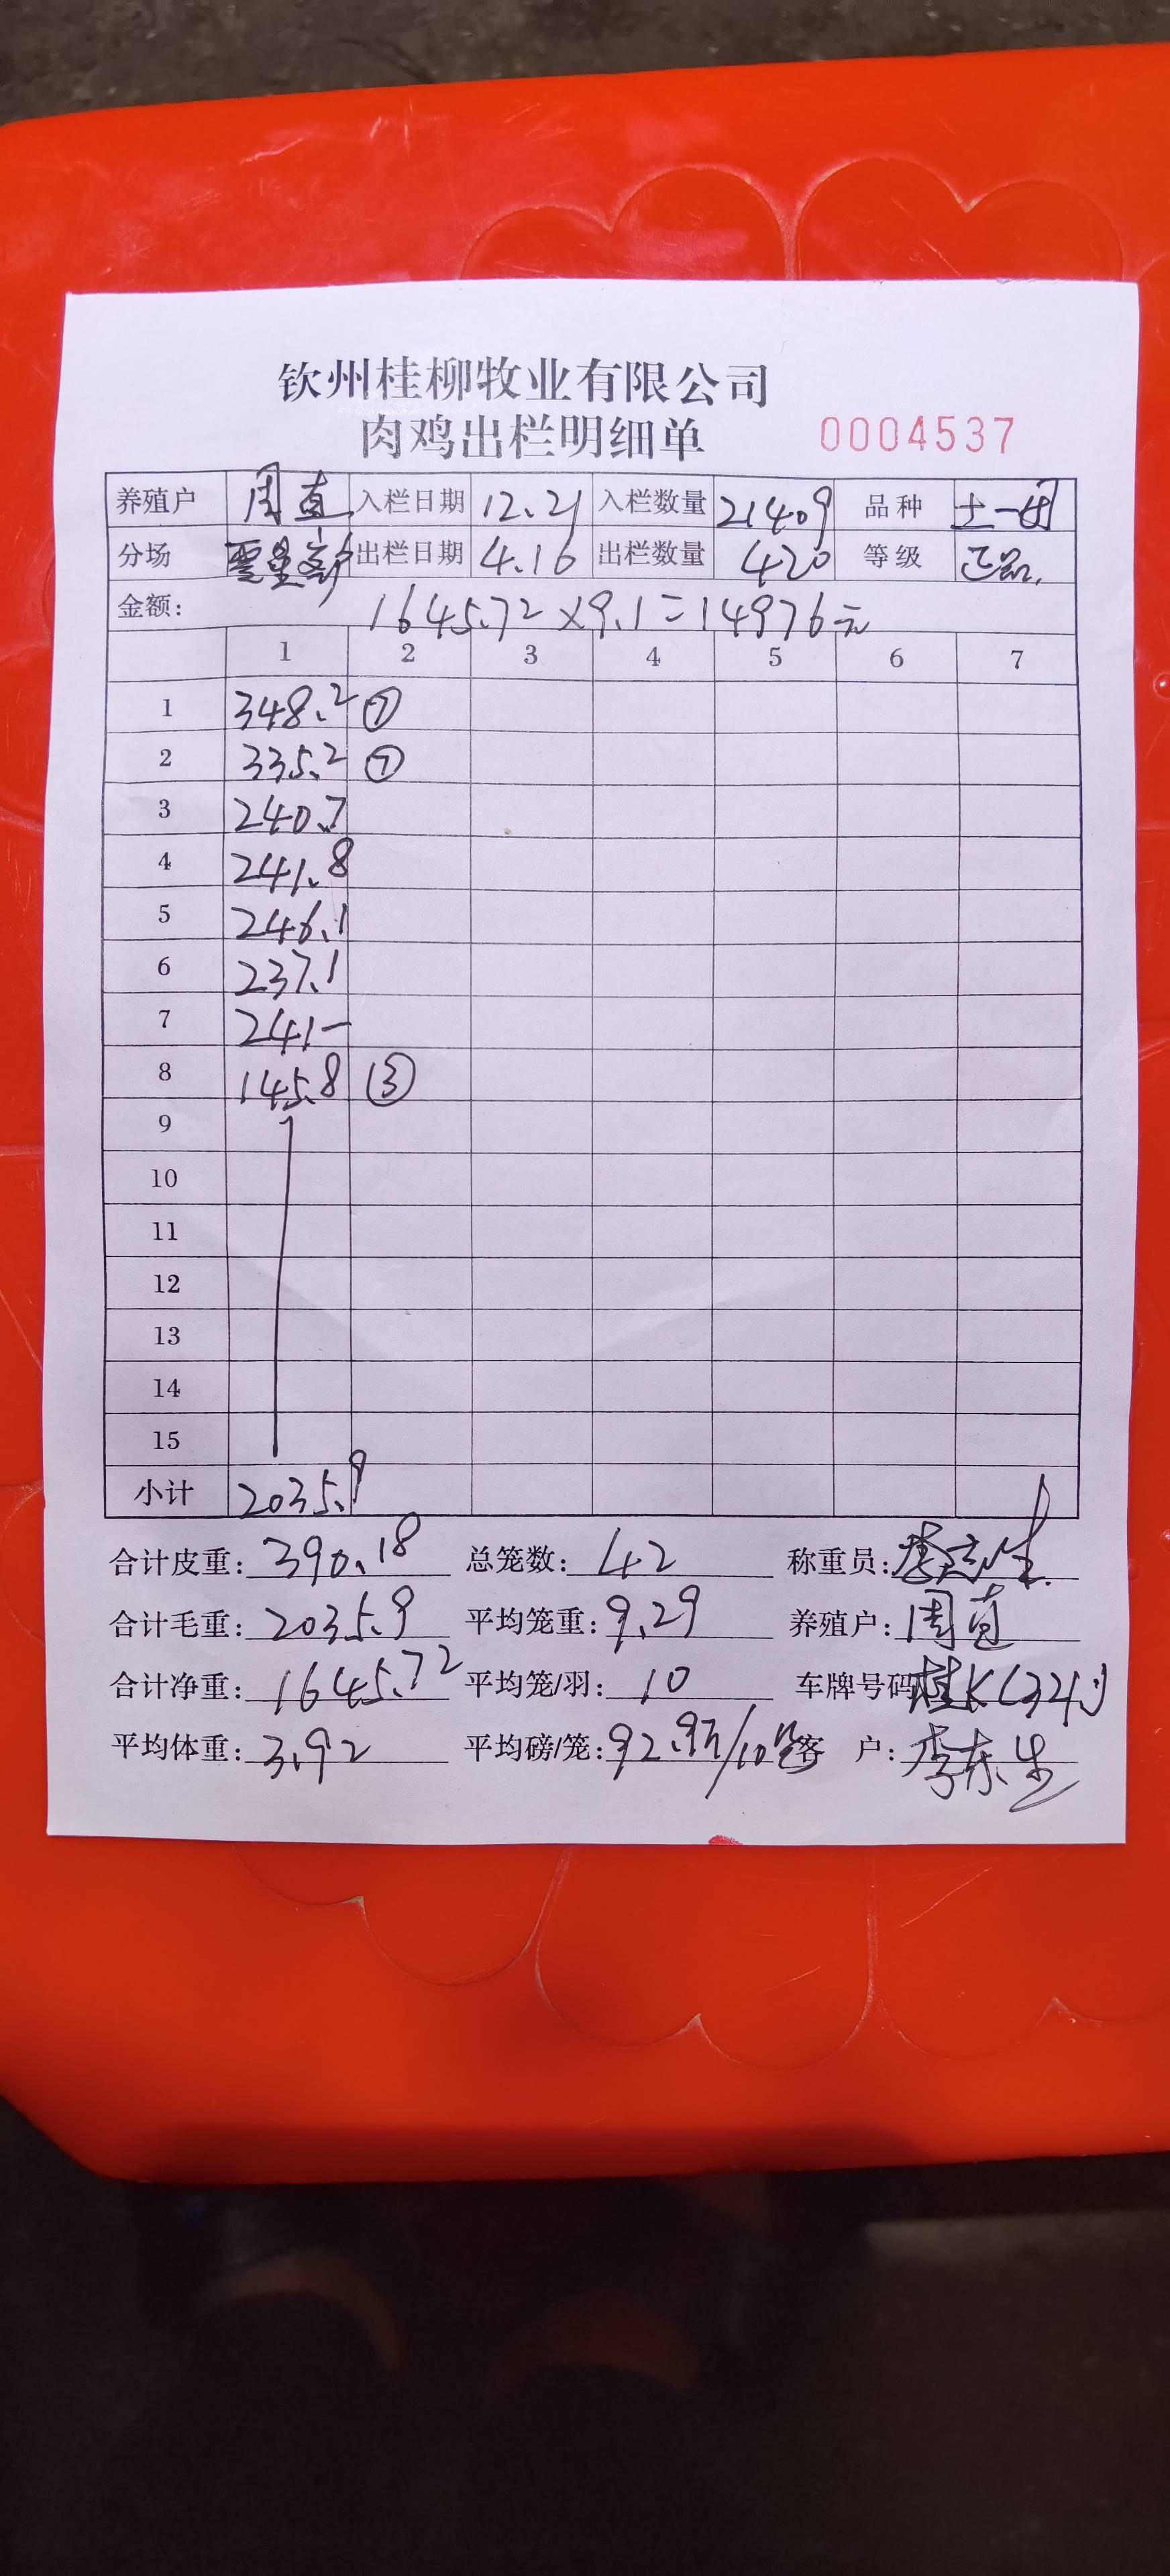 钦州桂柳牧业有限公司
肉鸡出栏明细单 0004537
养殖户 周直 入栏日期 12.21 入栏数量 21409 品种 土一
分场 出栏日期 4.16 出栏数量 420 等级 正品.
金额: 1645.72×9.1=14976元
1 2 3 4 5 6 7
1 348.2 ⑦
2 335.2 ⑦
3 240.7
4 241.8
5 246.1
6 237.1
7 241-
8 145.8 ③
9
10
11
12
13
14
15
小计 2035.9
合计皮重: 390.18 总笼数: 42 称重员:
合计毛重: 2035.9 平均笼重: 9.29 养殖户: 周直
合计净重: 1645.72 平均笼/羽: 10 车牌号码 桂K
平均体重: 3.92 平均磅/笼: 92.9斤/10 客 户: 李东生